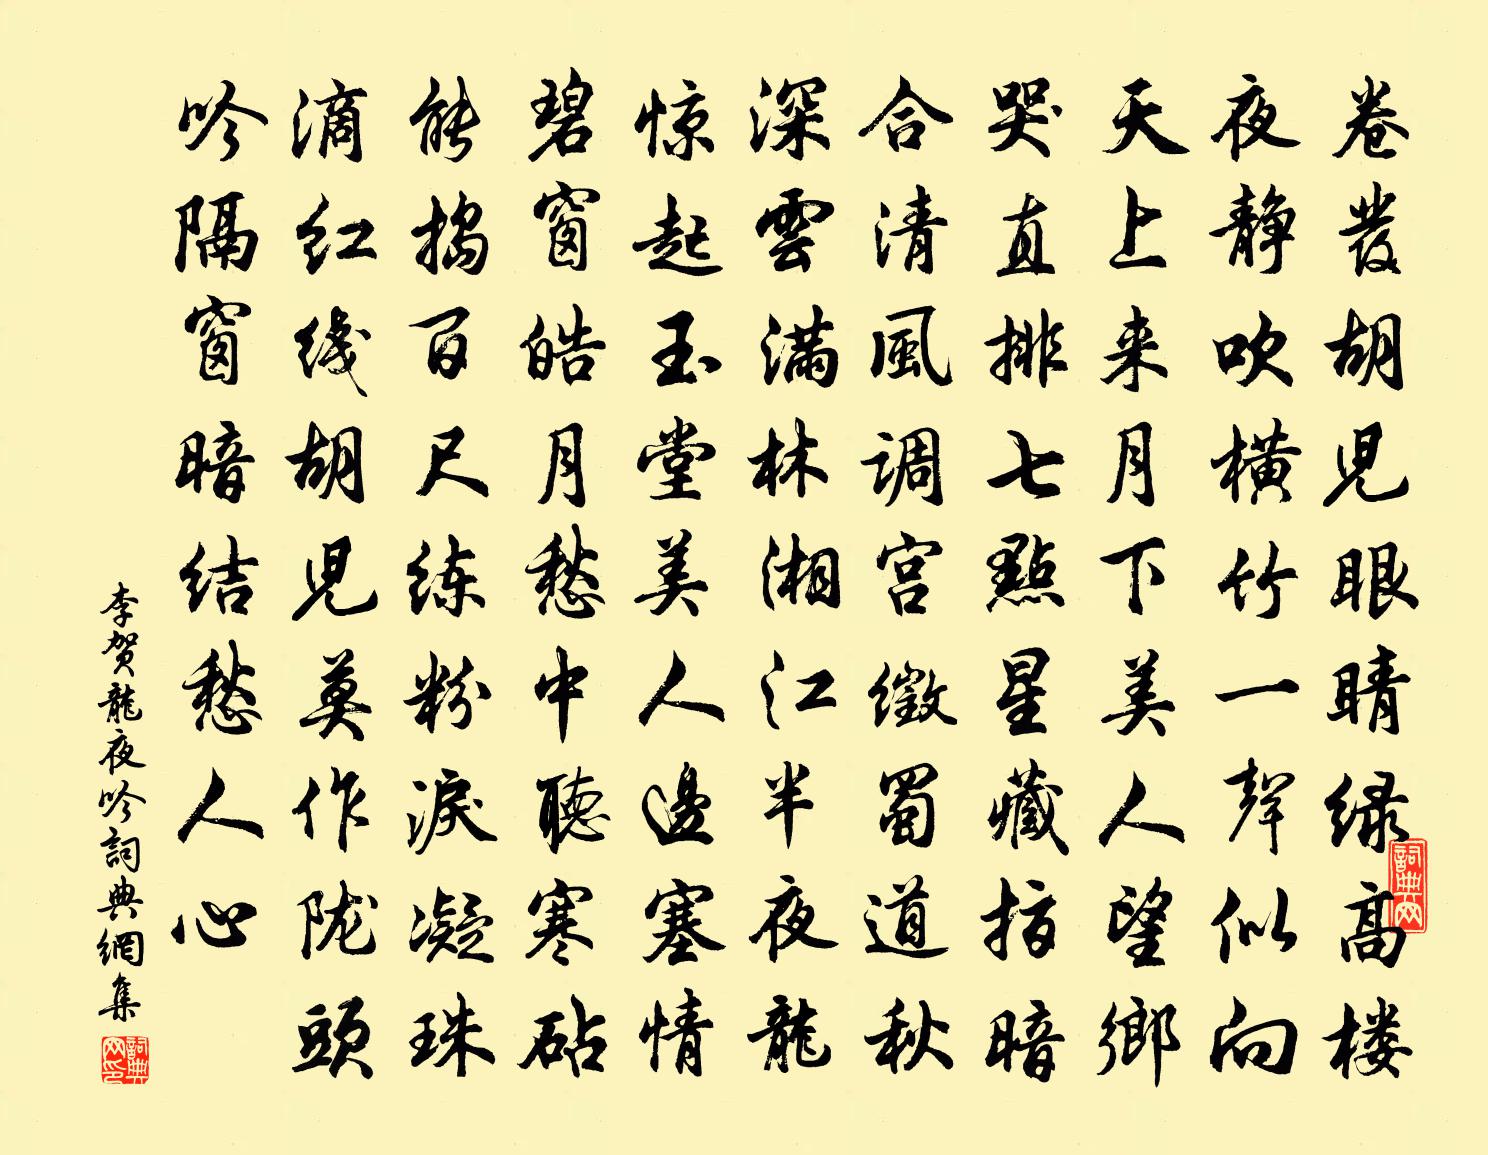 卷髮胡児眼睛緑高楼
夜静吹横竹一聲似向
天上来月下美人望鄉
哭直排七點星藏指暗
合清風调宫徵蜀道秋
深雲满林湘江半夜龍
惊起玉堂美人邊塞情
碧窗皓月愁中聽寒砧
能搗百尺练粉淚凝珠
滴红线胡児莫作陇頭
吟隔窗暗结愁人心
李贺龍夜吟詞典網集
詞典网
詞典网